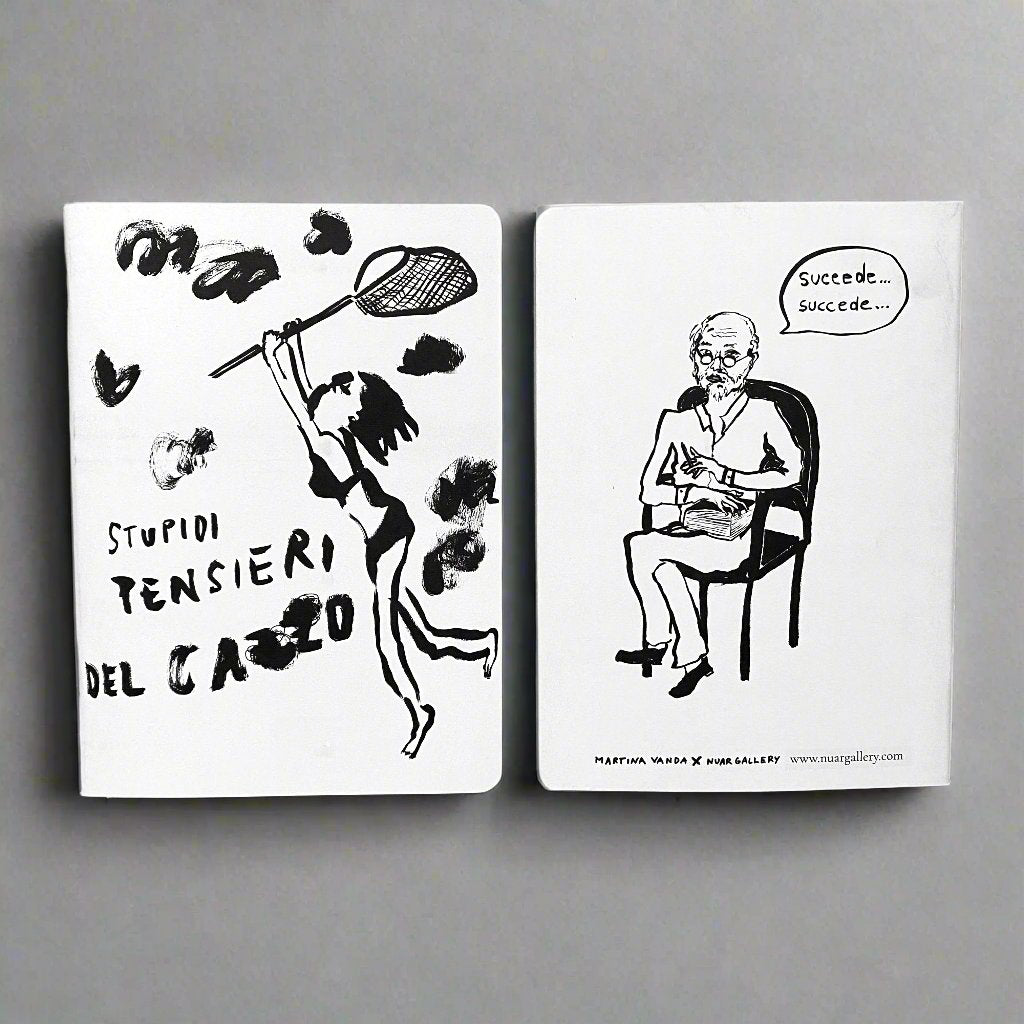 STUPIDI
PENSIERI
DEL CAZZO
succede...
succede...
MARTINA VANDA X NUAR GALLERY www.nuargallery.com